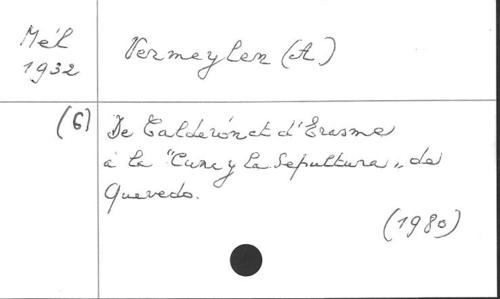 Mél
1932
Vermeylen (A)
(6)
De Calderón et d'Erasme
à la "Cuna y la Sepultura" de
Quevedo.
(1980)